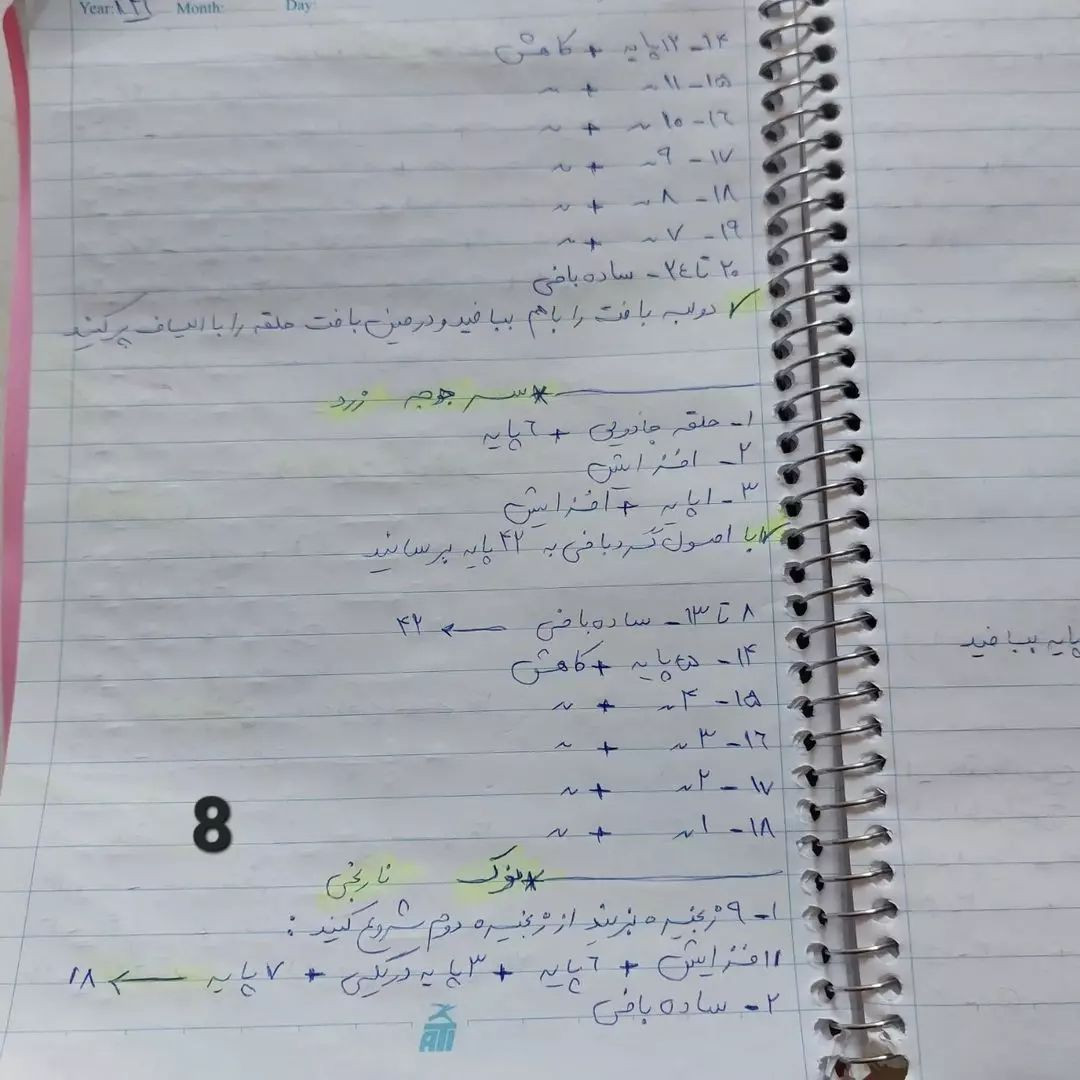 Year: Month: Day:
۱۴- ۱۲ پایه + کاهش
۱۵- ۱۱ ~ + ~
۱۶- ۱۰ ~ + ~
۱۷- ۹ ~ + ~
۱۸- ۸ ~ + ~
۱۹- ۷ ~ + ~
۲۰ تا ۲۴- ساده بافی
✓ دولبه بافت را باهم ببافید و درحین بافت حلقه را با الیاف پر کنید
* سر جوجه زرد
۱- حلقه جادویی + ۶ پایه
۲- افزایش
۳- ۱ پایه + افزایش
✓ با اصول گردبافی به ۴۲ پایه برسانید
۸ تا ۱۳- ساده بافی ← ۴۲
۱۴- ۵ پایه + کاهش
۱۵- ۴ ~ + ~
۱۶- ۳ ~ + ~
۱۷- ۲ ~ + ~
۱۸- ۱ ~ + ~
8
* نوک نارنجی
۱- ۹ زنجیره بزنید از زنجیره دوم شروع کنید :
۱ افزایش + ۶ پایه + ۳ پایه در یکی + ۷ پایه ← ۱۸
۲- ساده بافی
ATI
پایه ببافید